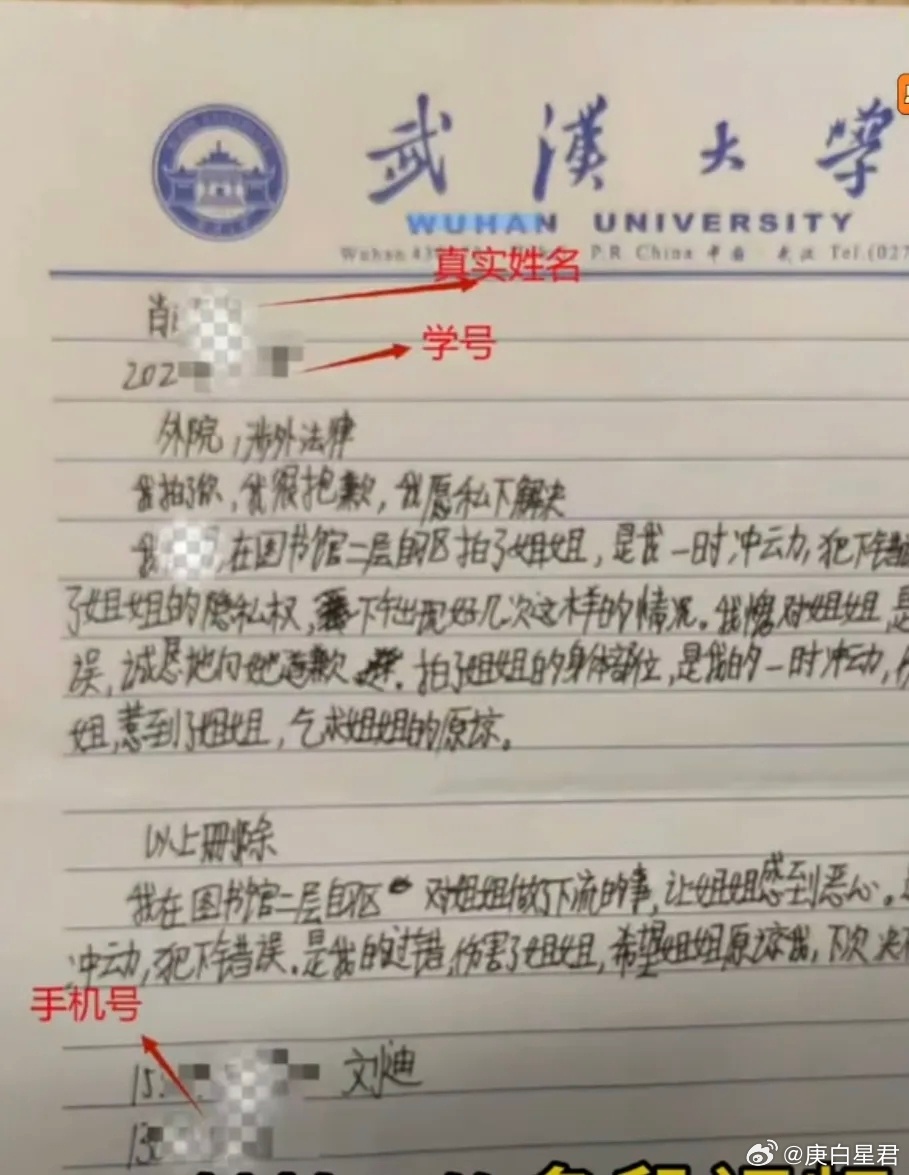 武漢大學
WUHAN UNIVERSITY
Wuhan 43 P.R China 中国·武汉 Tel.(027
真实姓名
肖
学号
202
外院,涉外法律
我拍了你,我很抱歉,我愿私下解决
我 ,在图书馆二层自习区拍了姐姐,是我一时冲动,犯下错
了姐姐的隐私权, 下午出现好几次这样的情况。我愧对姐姐,是
误,诚恳地向她道歉 . 拍了姐姐的身体部位,是我的一时冲动,
姐,惹到了姐姐,乞求姐姐的原谅。
以上删除
我在图书馆二层自习区 对姐姐做了下流的事,让姐姐感到恶心。
冲动,犯下错误.是我的过错,伤害了姐姐,希望姐姐原谅我,下次决
手机号
15 刘迪
13
@庚白星君